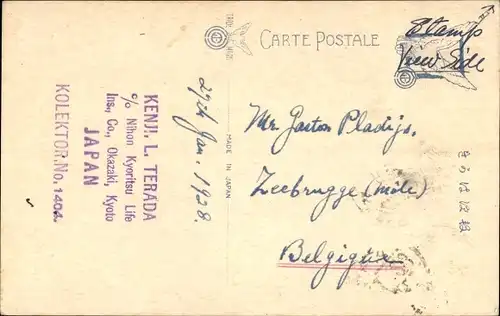 CARTE POSTALE
Stamp
View Side
Mr. Gaston Pladijs.
Zeebrugge (môle)
Belgique
MADE IN JAPAN
29th Jan. 1928.
KENJI. L. TERADA
c/o Nihon Kyoritsu Life
Ins., Co., Okazaki, Kyoto
JAPAN
KOLEKTOR. No. 1404.